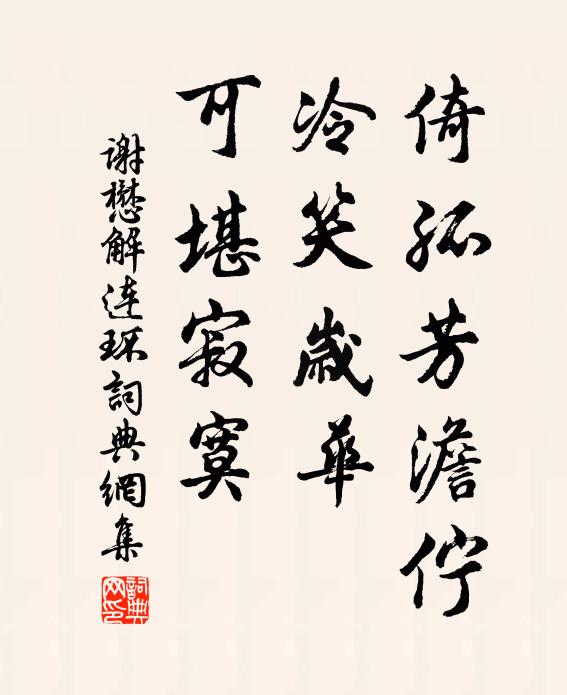 倚孤芳澹佇
冷笑歲華
可堪寂寞
謝懋解連环詞典網集
詞典网印